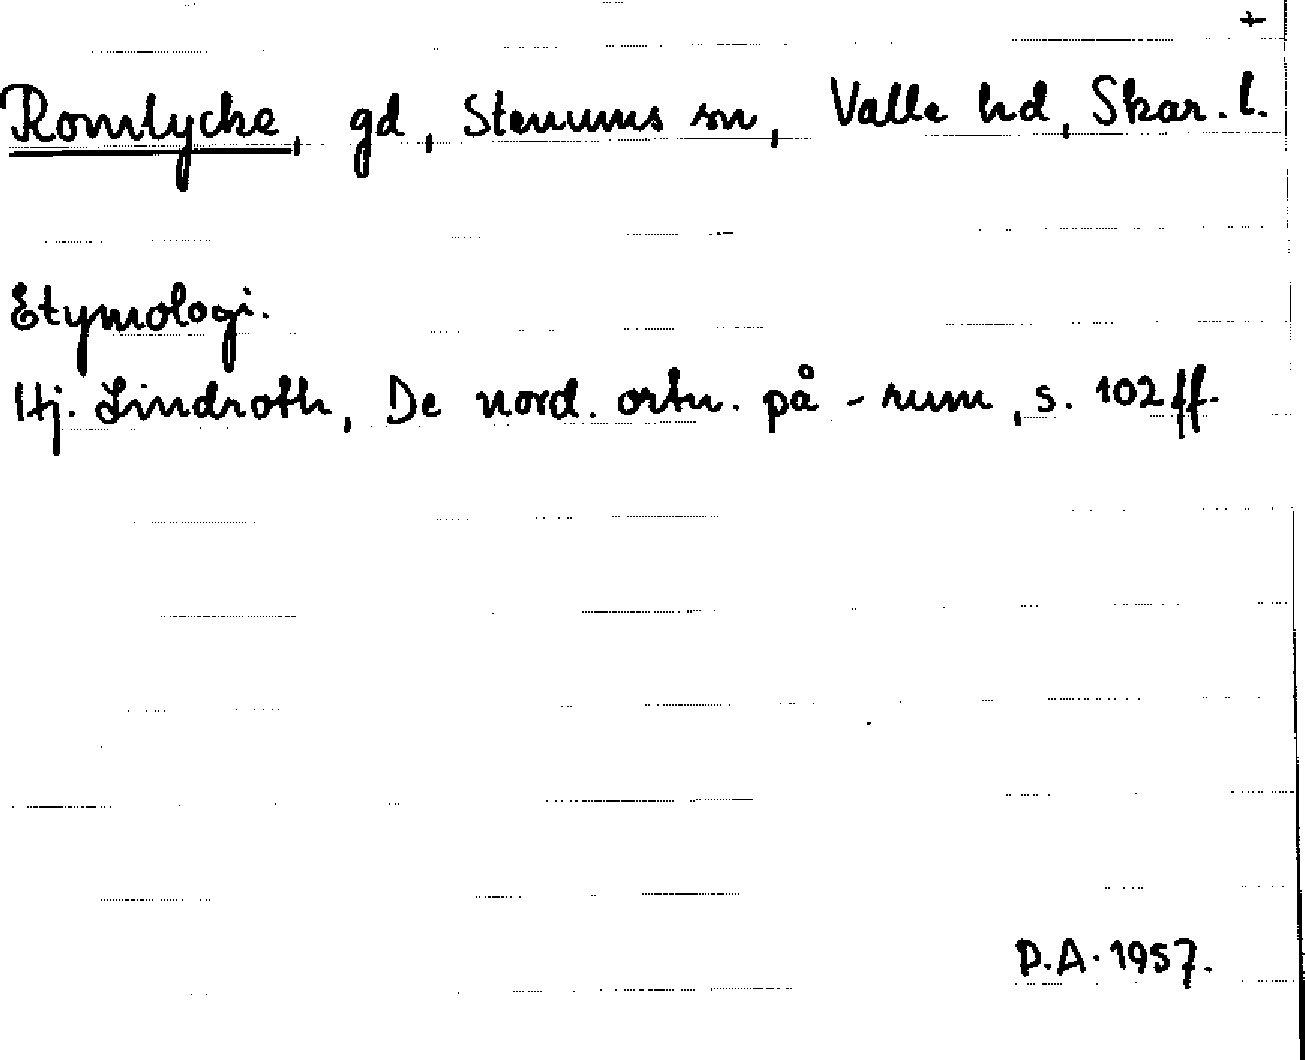 +
Romlycke, gd, Stenums sn, Valle hd, Skar. l.
Etymologi.
Hj. Lindroth, De nord. ortn. på -rum, s. 102 ff.
D.A. 1957.